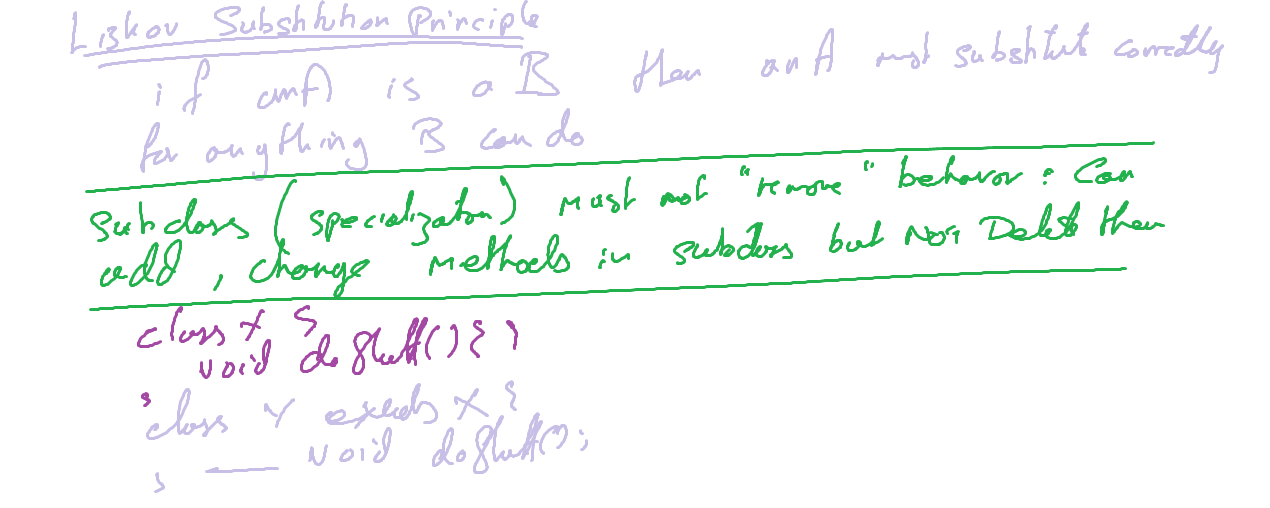 Liskov Substitution Principle
if an A is a B then an A must substitute correctly
for anything B can do
subclass (specialization) must not "remove" behavior: Can
add, change methods in subclass but NOT Delete them
class X {
void doStuff() { }
}
class Y extends X {
void doStuff();
}